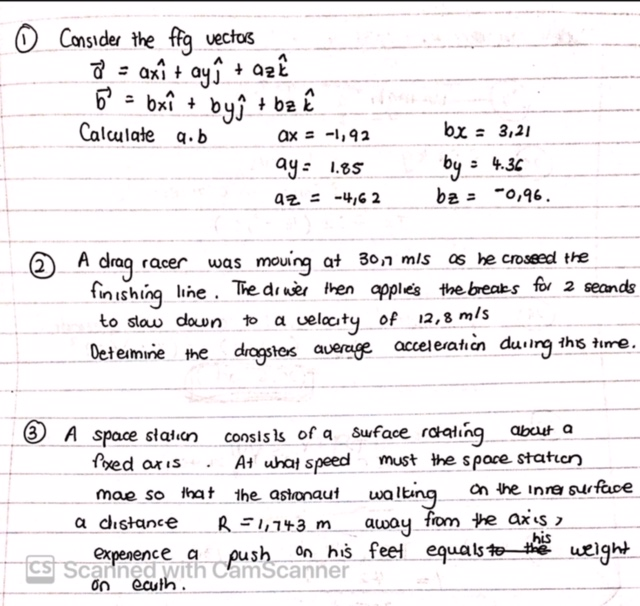 ① Consider the ffg vectors
a⃗ = axî + ayĵ + azk̂
b⃗ = bxî + byĵ + bzk̂
Calculate a.b ax = -1,92 bx = 3,21
ay = 1.85 by = 4.36
az = -4,62 bz = -0,96.
② A drag racer was moving at 30,7 m/s as he crossed the
finishing line. The driver then applies the breaks for 2 seconds
to slow down to a velocity of 12,8 m/s
Determine the dragsters average acceleration during this time.
③ A space station consists of a surface rotating about a
fixed axis. At what speed must the space station
move so that the astronaut walking on the inner surface
a distance R = 1,743 m away from the axis,
experience a push on his feet equals to the his weight
on earth.
CS Scanned with CamScanner